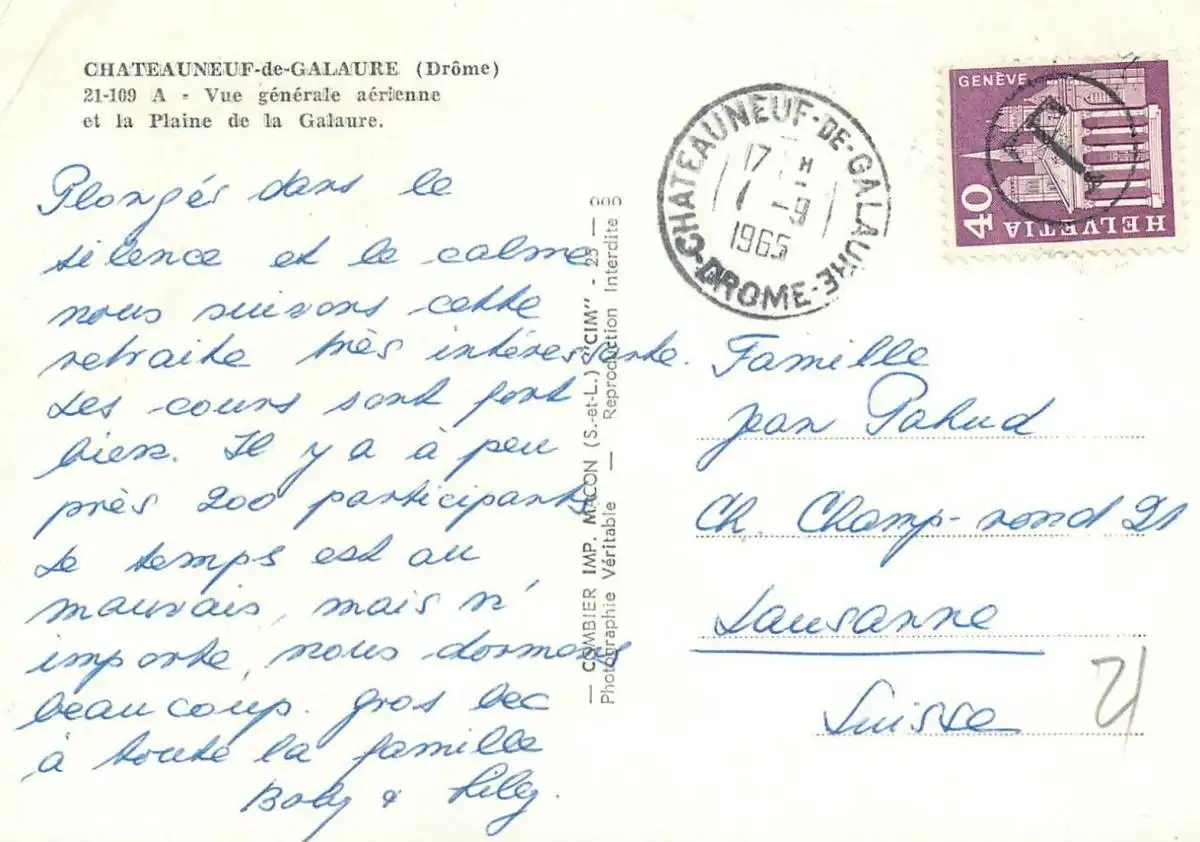 CHATEAUNEUF-de-GALAURE (Drôme)
21-109 A - Vue générale aérienne
et la Plaine de la Galaure.
Plongés dans le
silence et le calme
nous suivons cette
retraite très intéressante.
Les cours sont fort
bien. Il y a à peu
près 200 participants
Le temps est au
mauvais, mais n'
importe, nous dormons
beaucoup. Gros bec
à toute la famille
Boby & Lily.
— COMBIER IMP. MACON (S.-et-L.) "CIM" - 25 —
Photographie Véritable — Reproduction Interdite
CHATEAUNEUF-DE-GALAURE
17 H
1 -9
1965
DROME
GENÈVE
40
HELVETIA
T
Famille
Jean Pahud
Ch. Champ-rond 21
Lausanne
Suisse
21